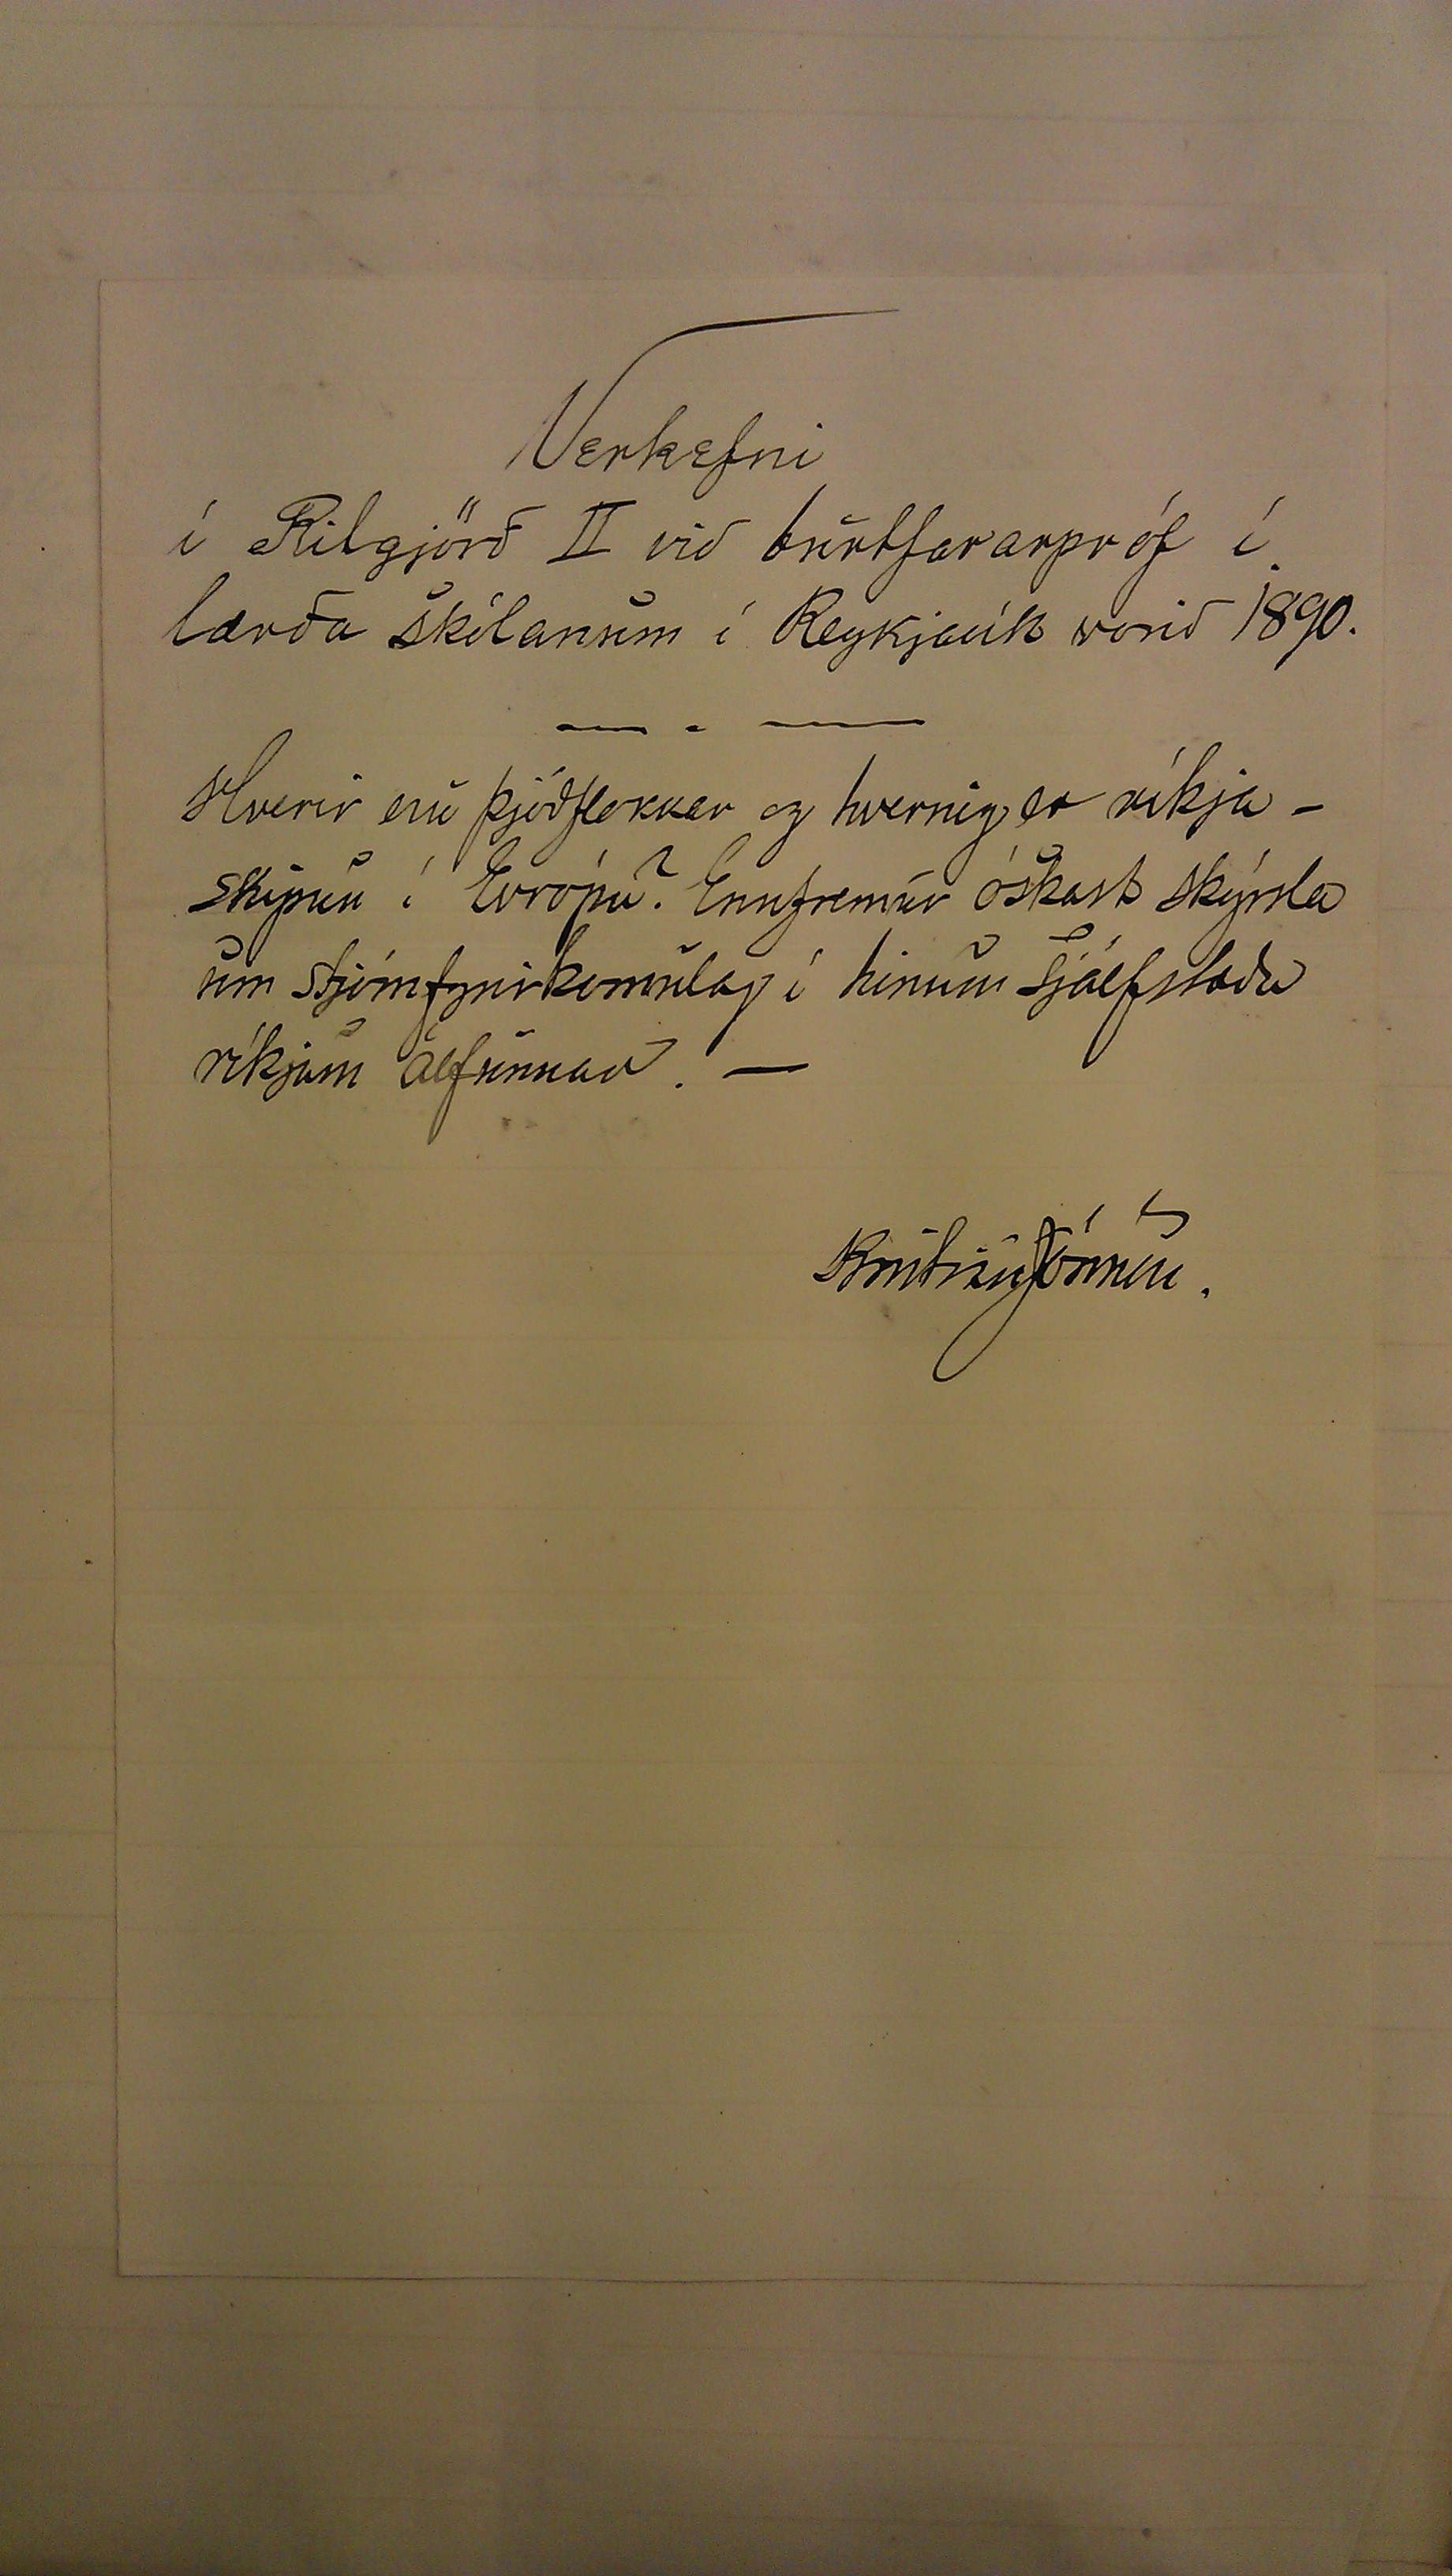 Verkefni
í Ritgjörð II við burtfararpróf í
lærða skólanum í Reykjavík vorið 1890.
Hverir eru þjóðflokkar og hvernig er ríkja-
skipun í Evrópu? Ennfremur óskast skýrsla
um stjórnfyrirkomulag í hinum sjálfstæðu
ríkjum álfunnar. —
Kristján Jónsson.